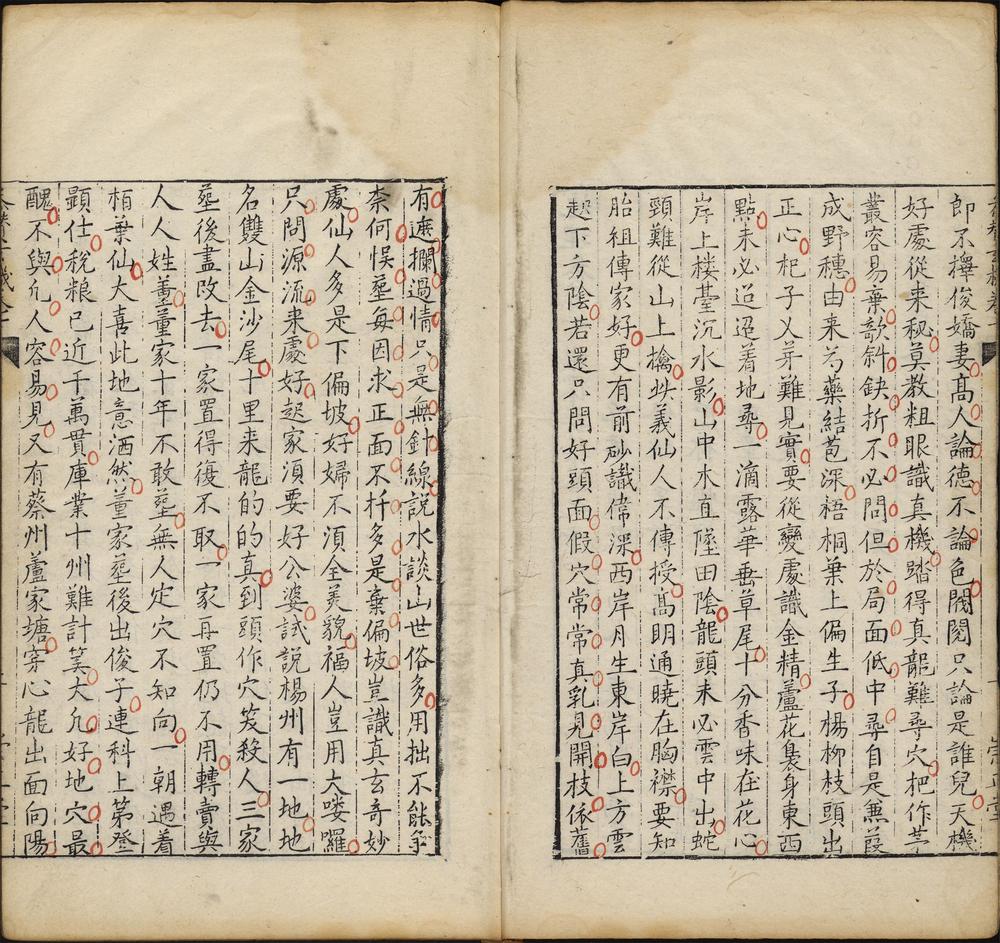 即不擇俊嬌妻高人論德不論色閥閱只論是誰兒天機
好處從来秘莫教粗眼識真機踏得真龍難尋穴把作茅
叢容易棄欹斜缺折不必問但於局面低中尋自是蒹葭
成野穗由来芍藥結苞深梧桐葉上偏生子楊柳枝頭出
正心杞子又芽難見實要從變處識金精蘆花裊身東西
點未必迢迢着地尋一滴露華垂草尾十分香味在花心
岸上楼䑓沉水影山中木直墜田陰龍頭未必雲中出蛇
頸難從山上擒此義仙人不傳授高明通曉在胸襟要知
胎祖傳家好更有前砂識偉深西岸月生東岸白上方雲
起下方陰若還只問好頭面假穴常常真乳見開枝依舊
有遮攔過情只是無針線說水談山世俗多用拙不能爭
奈何悮塟每因求正面不扦多是棄偏坡豈識真玄奇妙
處仙人多是下偏坡好婦不湏全美貌福人豈用大嘍囉
只問源流来處好起家湏要好公婆試說楊州有一地地
名雙山金沙尾十里来龍的的真到頭作穴笅殺人三家
塟後盡改去一家置得復不取一家再置仍不用轉賣與
人人姓董董家十年不敢塟無人定穴不知向一朝遇着
栢葉仙大喜此地意洒然董家塟後出俊子連科上第登
顯仕税粮已近千萬貫庫業十州難計筭大凢好地穴最
醜不與凢人容易見又有蔡州蘆家塘穿心龍出面向陽